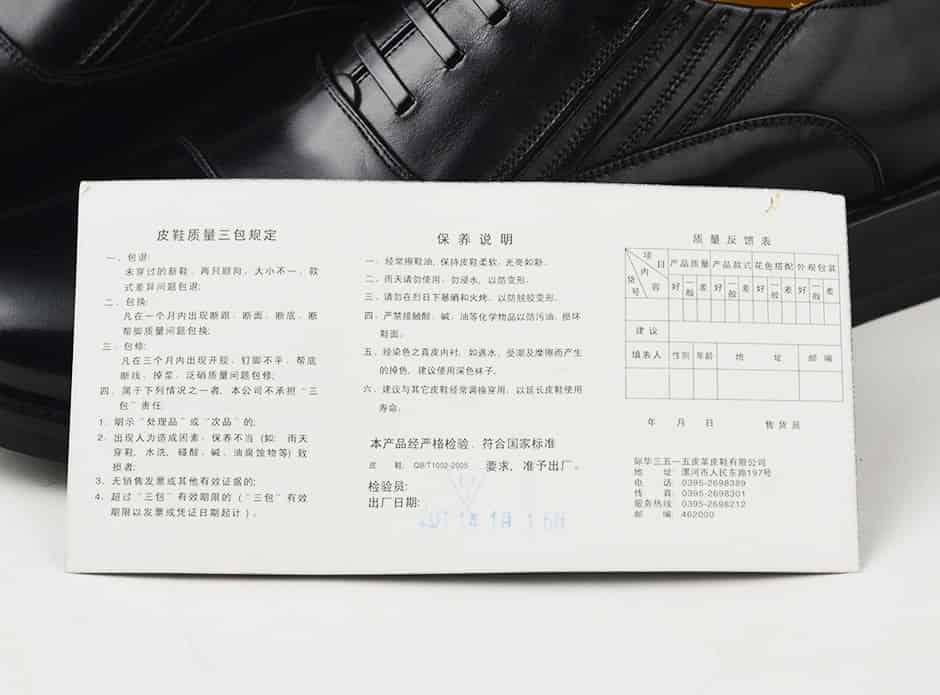 皮鞋质量三包规定
一、包退:
未穿过的新鞋, 两只顺向, 大小不一, 款
式差异问题包退;
二、包换:
凡在一个月内出现断跟、断面、断底、断
帮脚质量问题包换;
三、包修:
凡在三个月内出现开胶、钉脚不平、帮底
断线、掉浆、泛硝质量问题包修;
四、属于下列情况之一者, 本公司不承担“三
包”责任:
1、明示“处理品”或“次品”的;
2、出现人为造成因素、保养不当 (如: 雨天
穿鞋, 水洗、碰酸、碱、油腐蚀物等) 致
损者;
3、无销售发票或其他有效证据的;
4、超过“三包”有效期限的 (“三包”有效
期限以发票或凭证日期起计) 。
保养说明
一、经常擦鞋油, 保持皮鞋柔软、光亮如新。
二、雨天请勿使用、勿浸水, 以防变形。
三、请勿在烈日下暴晒和火烤, 以防脱胶变形。
四、严禁接触酸、碱、油等化学物品以防污油、损坏
鞋面。
五、经染色之真皮内衬, 如遇水、受潮及摩擦而产生
的掉色, 建议使用深色袜子。
六、建议与其它皮鞋经常调换穿用, 以延长皮鞋使用
寿命。
本产品经严格检验、符合国家标准
皮 鞋: QB/T1002-2005 要求, 准予出厂。
检验员:
出厂日期:
质量反馈表
项目 内容 货号 产品质量 产品款式 花色搭配 外观包装
好 一般 差 好 一般 差 好 一般 差 好 一般 差
建议
填表人 性别 年龄 地 址 邮编
年 月 日 售货员
际华三五一五皮革皮鞋有限公司
地 址: 漯河市人民东路197号
电 话: 0395-2698389
传 真: 0395-2698301
服务热线: 0395-2698212
邮 编: 462000